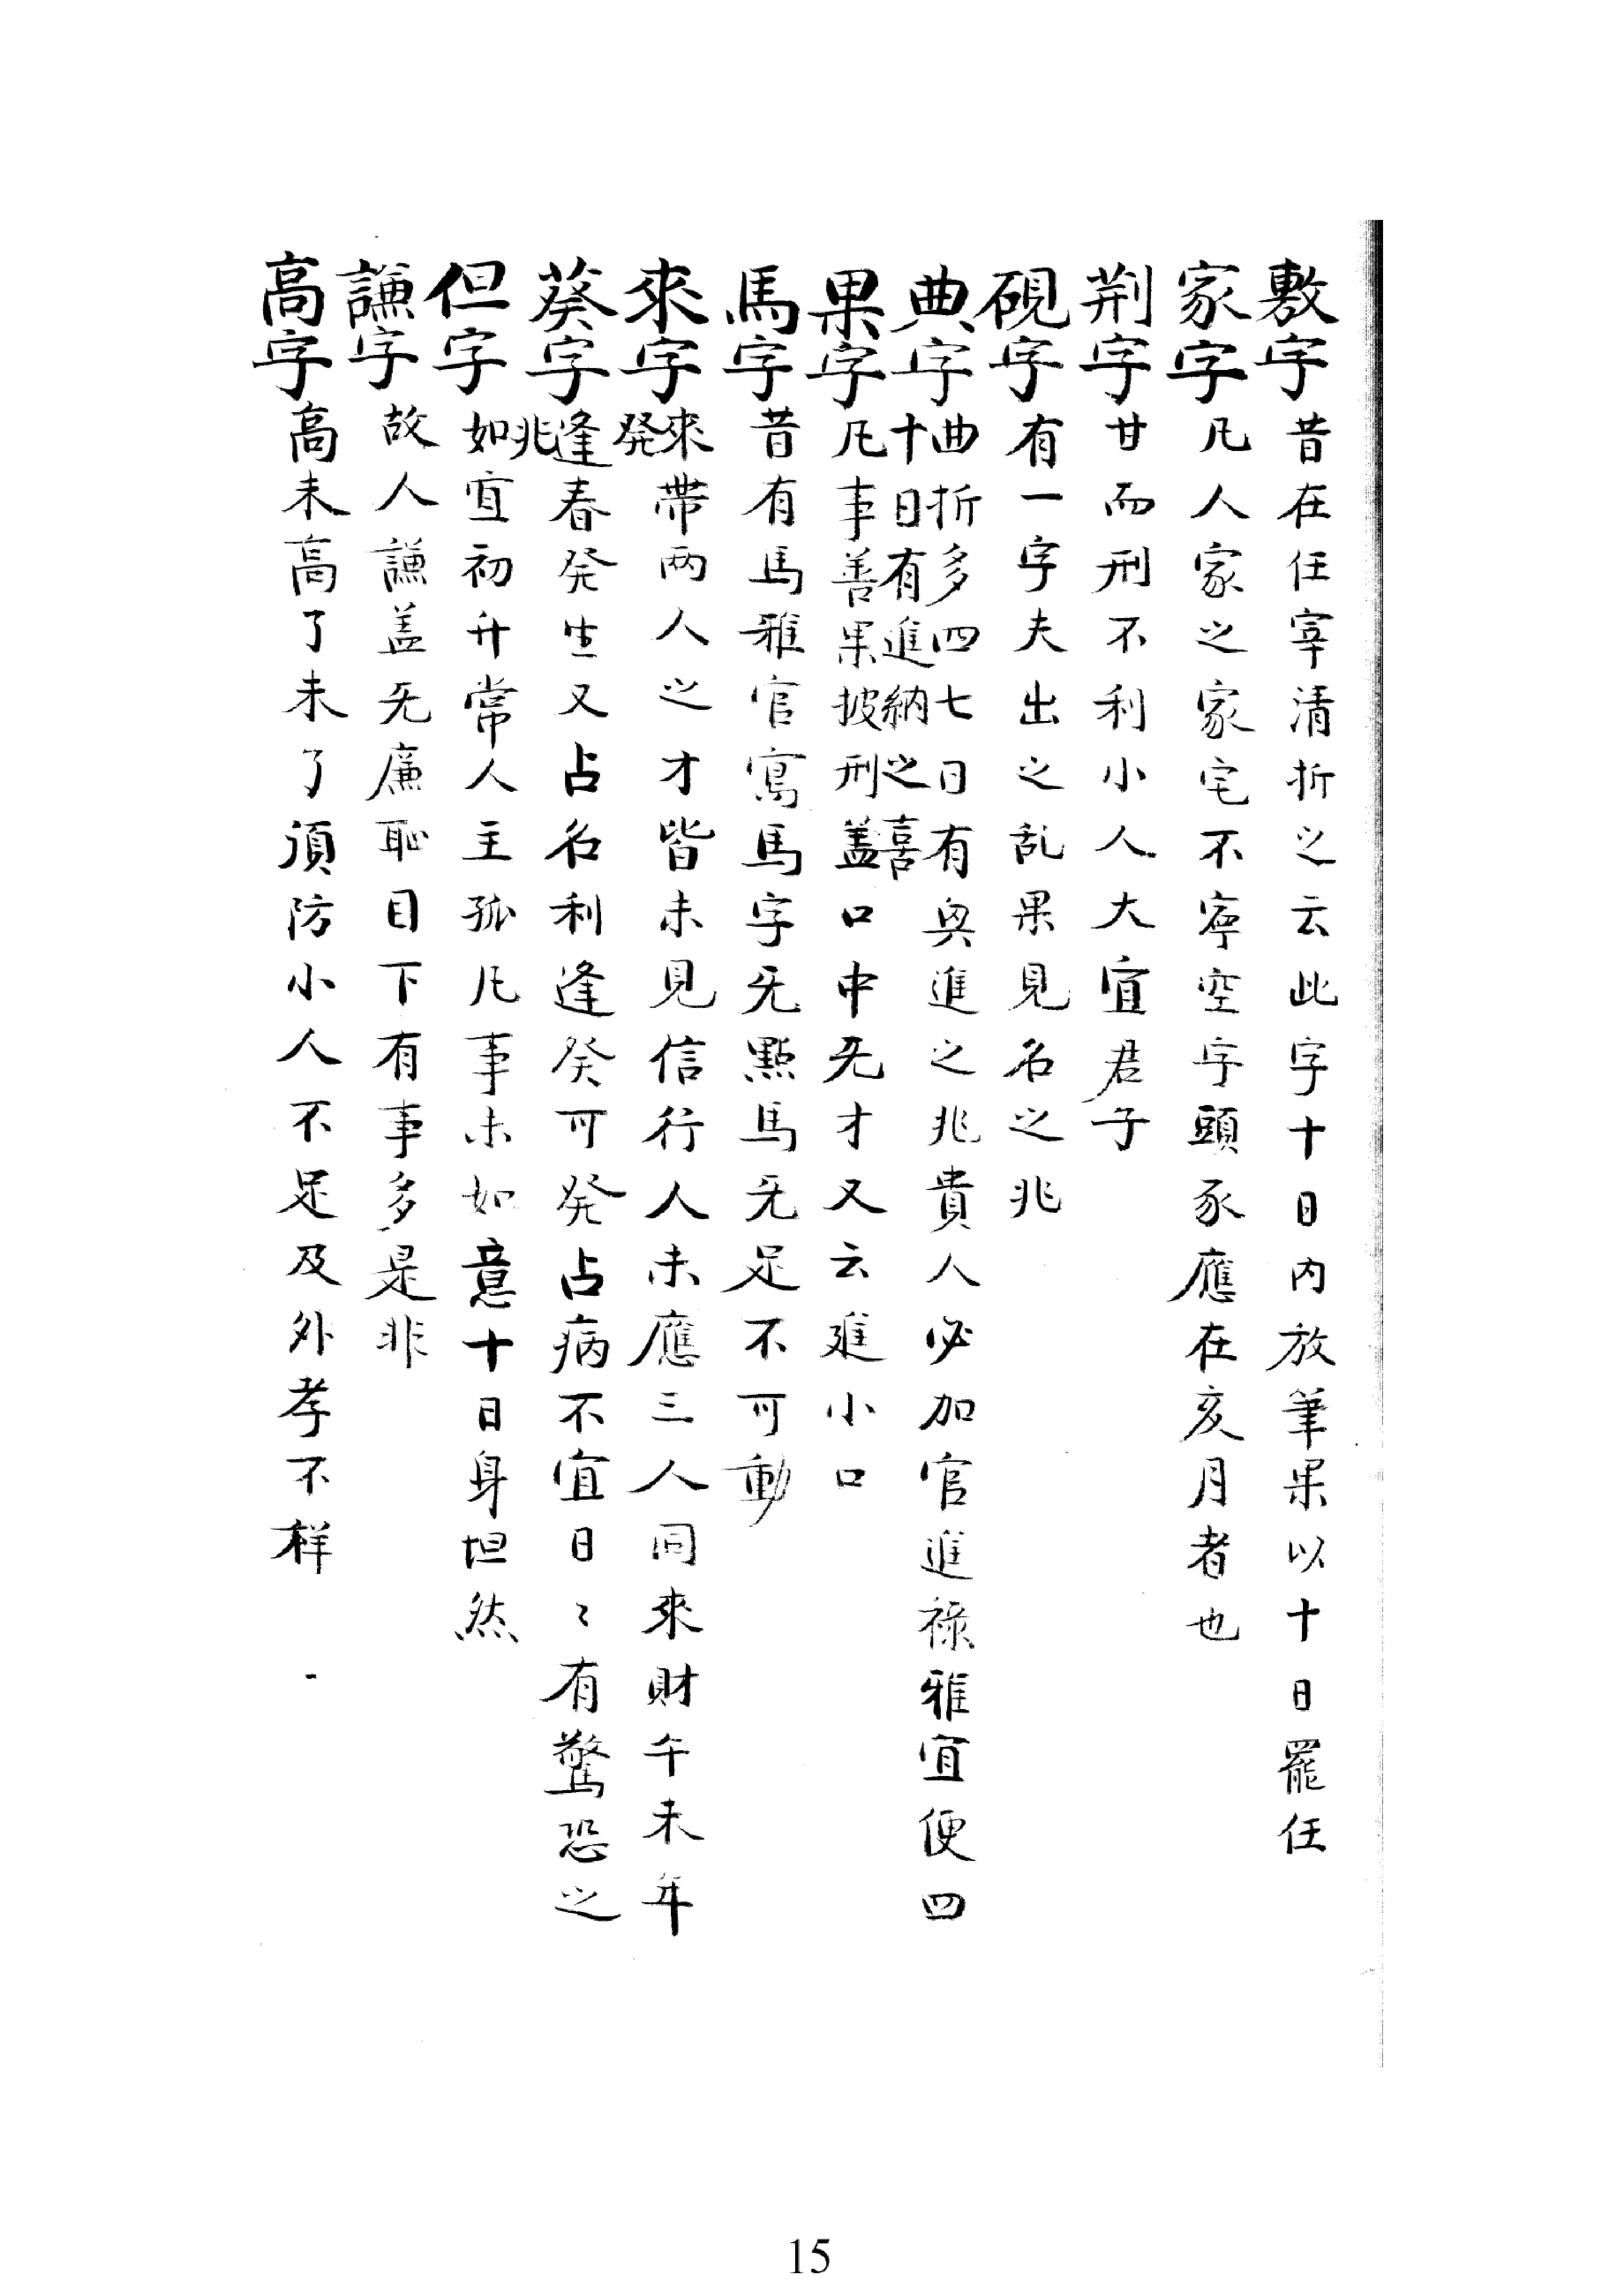 敷字昔在任宰清折之云此字十日内放筆果以十日罷任
家字凡人家之家家宅不寧空字頭豕應在亥月者也
荆字廿而刑不利小人大宜君子
硯字有一字夫出之乱果見名之兆
典字曲折多四七日有與進之兆貴人必加官進祿雅宜便四
十日有進納之喜
果字凡事善果披刑蓋口中旡才又云進小口
馬字昔有馬雅官寫馬字旡點馬旡足不可動
來字來帶两人之才皆未見信行人未應三人同來財午未年
発
葵字逢春発生又占名利逢癸可発占病不宜日〻有驚恐之
兆
但字如宜初升常人主孤凡事未如意十日身坦然
謙字故人謙盖旡廉恥目下有事多是非
高字高未高了未了須防小人不足及外孝不样
15